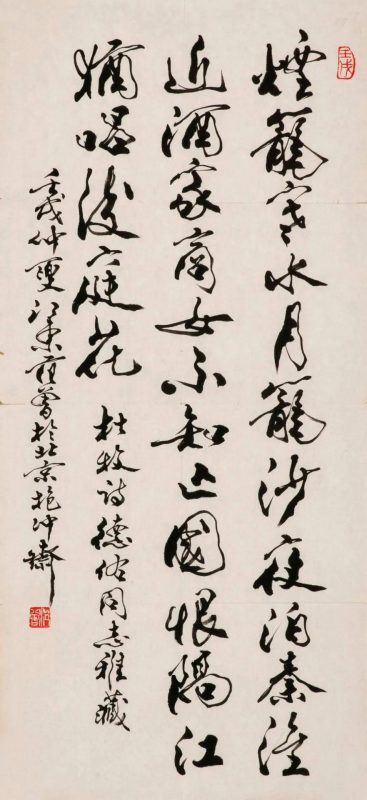 壬戌
煙籠寒水月籠沙夜泊秦淮
近酒家商女不知亡國恨隔江
猶唱後庭花
杜牧詩德佑同志雅藏
壬戌仲夏江東范曾於北京抱沖齋
范曾